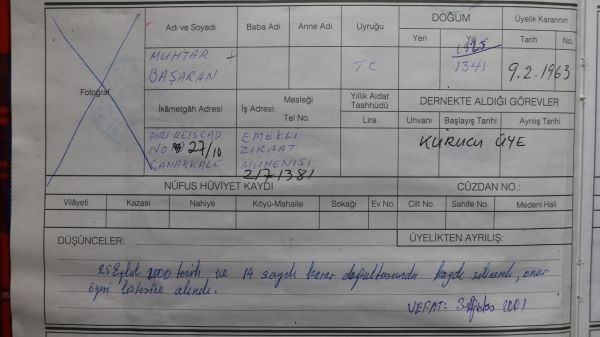 Adı ve Soyadı Baba Adı Anne Adı Uyruğu DOĞUM Üyelik Kararının
Yeri Yılı Tarih No.
Fotoğraf
MUHTAR
BAŞARAN
T.C
1925
1341
9.2.1963
İkâmetgâh Adresi İş Adresi: Mesleği Tel No. Yıllık Aidat Taahhüdü Lira DERNEKTE ALDIĞI GÖREVLER
Unvanı Başlayış Tarihi Ayrılış Tarihi
PİRİ REİS CAD
NO 27/10
ÇANAKKALE
EMEKLİ
ZİRAAT
MÜHENİSİ
2171381
KURUCU ÜYE
NÜFUS HÜVİYET KAYDI CÜZDAN NO.:
Vilâyeti Kazası Nahiye Köyü-Mahalle Sokağı Ev No. Cilt No. Sahife No. Medeni Hali
DÜŞÜNCELER: ÜYELİKTEN AYRILIŞ:
25 Eylül 2000 tarih ve 14 sayılı karar doğrultusunda kaydı silinerek, onur
üyesi listesine alındı.
VEFAT: 3 Ağustos 2001